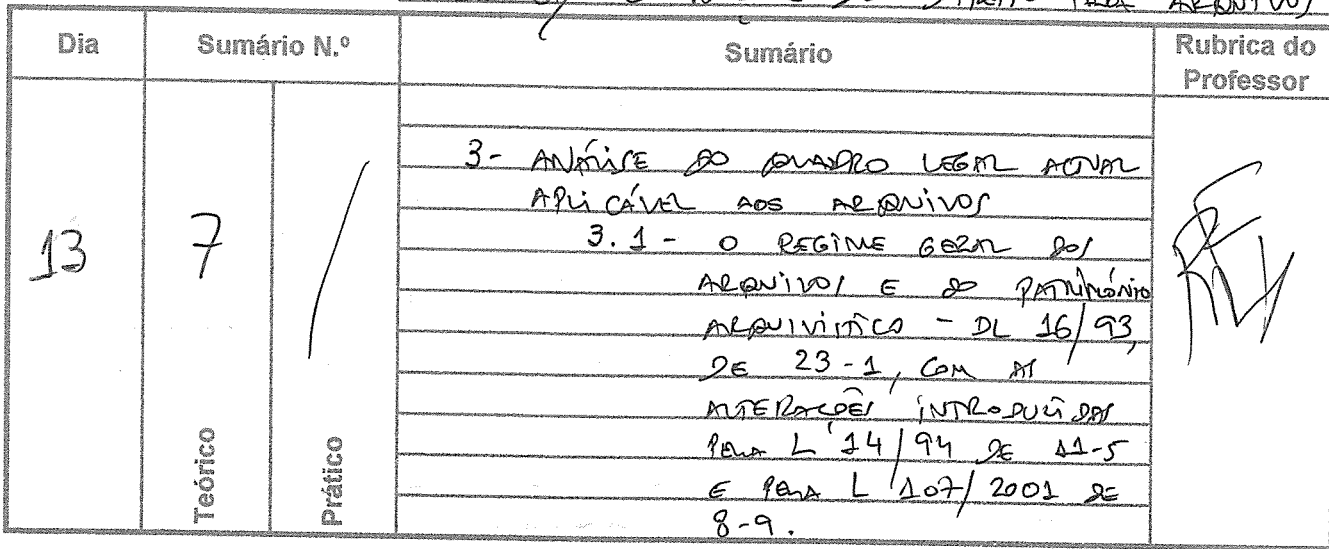 DO DIREITO PARA ARQUIVOS
Dia
Sumário N.º
Sumário
Rubrica do
Professor
13
7
/
Teórico
Prático
3- ANÁLISE DO QUADRO LEGAL ACTUAL
APLICÁVEL AOS ARQUIVOS
3.1 - O REGIME GERAL DOS
ARQUIVOS E DO PATRIMÓNIO
ARQUIVÍSTICO - DL 16/93,
DE 23-1, COM AS
ALTERAÇÕES INTRODUZIDAS
PELA L 14/94 DE 11-5
E PELA L 107/2001 DE
8-9.